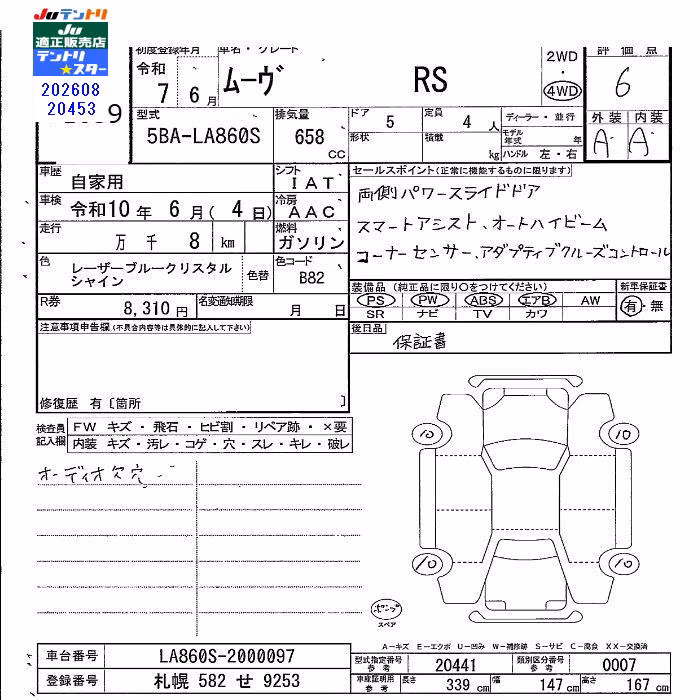 JUテントリ
JU
適正販売店
テントリ
★スター
202608
20453
9
初度登録年月
令和
7 6 月
車名・グレード
ムーヴ RS
2WD
・
4WD
評価点
6
型式
5BA-LA860S
排気量
658
CC
ドア
5
定員
4 人
形状
積載
kg
ディーラー・並行
モデル
年式 年
ハンドル 左・右
外装 内装
A A
車歴
自家用
シフト
IAT
車検
令和10 年 6 月( 4 日)
冷房
AAC
走行
万 千 8 km
燃料
ガソリン
色
レーザーブルークリスタル
シャイン
色替
色コード
B82
R券
8,310 円
名変通知期限
月 日
セールスポイント(正常に機能するものに限ります)
両側パワースライドドア
スマートアシスト、オートハイビーム
コーナーセンサー、アダプティブクルーズコントロール
装備品(純正品に限り○をつけてください)
PS PW ABS エアB AW
SR ナビ TV カワ
新車保証書
有・無
後日品
保証書
注意事項申告欄(不具合内容等は具体的に記入して下さい)
修復歴 有〔箇所 〕
検査員
記入欄
FW キズ・飛石・ヒビ割・リペア跡・×要
内装 キズ・汚レ・コゲ・穴・スレ・キレ・破レ
オーディオ欠穴
10 10
10 10
ポンプ
スペア
A−キズ E−エクボ U−凹み W−補修跡 S−サビ C−腐食 XX−交換済
車台番号
LA860S-2000097
登録番号
札幌 582 せ 9253
型式指定番号
参考
20441
類別区分番号
参考
0007
車庫証明用
参考
長さ 339 cm
幅 147 cm
高さ 167 cm